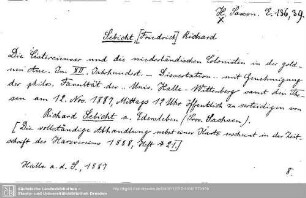 H. Saxon. E. 136, 39.
Sebicht [Friedrich] Richard
Die Cistercienser und die niederländischen Colonisten in der gold-
nen Aue. Im XII. Jahrhundert. – Dissertation .. mit Genehmigung
der philos. Facultät der .. Univ. Halle-Wittenberg samt den The-
sen am 12. Nov. 1887, Mittags 12 Uhr öffentlich zu verteidigen von
Richard Sebicht a. (Prov. Sachsen).
[Die vollständige Abhandlung nebst einer Karte erscheint in der Zeit-
schrift des Harzvereins 1888, Heft
Halle a. d. S., 1887 8.